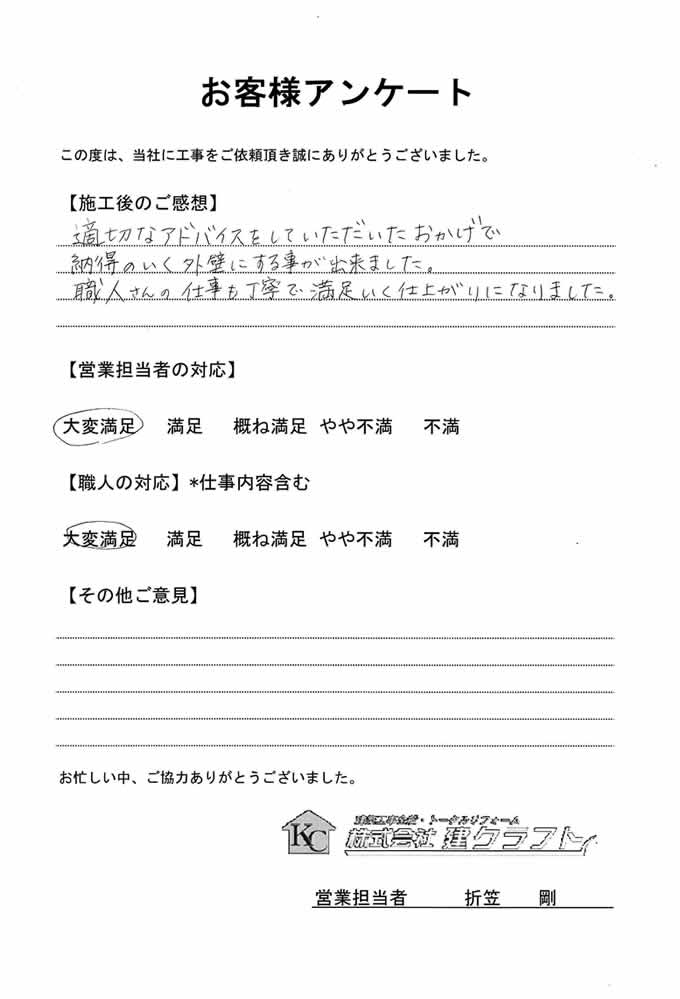 お客様アンケート
この度は、当社に工事をご依頼頂き誠にありがとうございました。
【施工後のご感想】
適切なアドバイスをしていただいたおかげで
納得のいく外壁にする事が出来ました。
職人さんの仕事も丁寧で満足いく仕上がりになりました。
【営業担当者の対応】
大変満足 満足 概ね満足 やや不満 不満
【職人の対応】*仕事内容含む
大変満足 満足 概ね満足 やや不満 不満
【その他ご意見】
お忙しい中、ご協力ありがとうございました。
・トータルリフォーム
KC 株式会社 建クラフト
営業担当者 折笠 剛